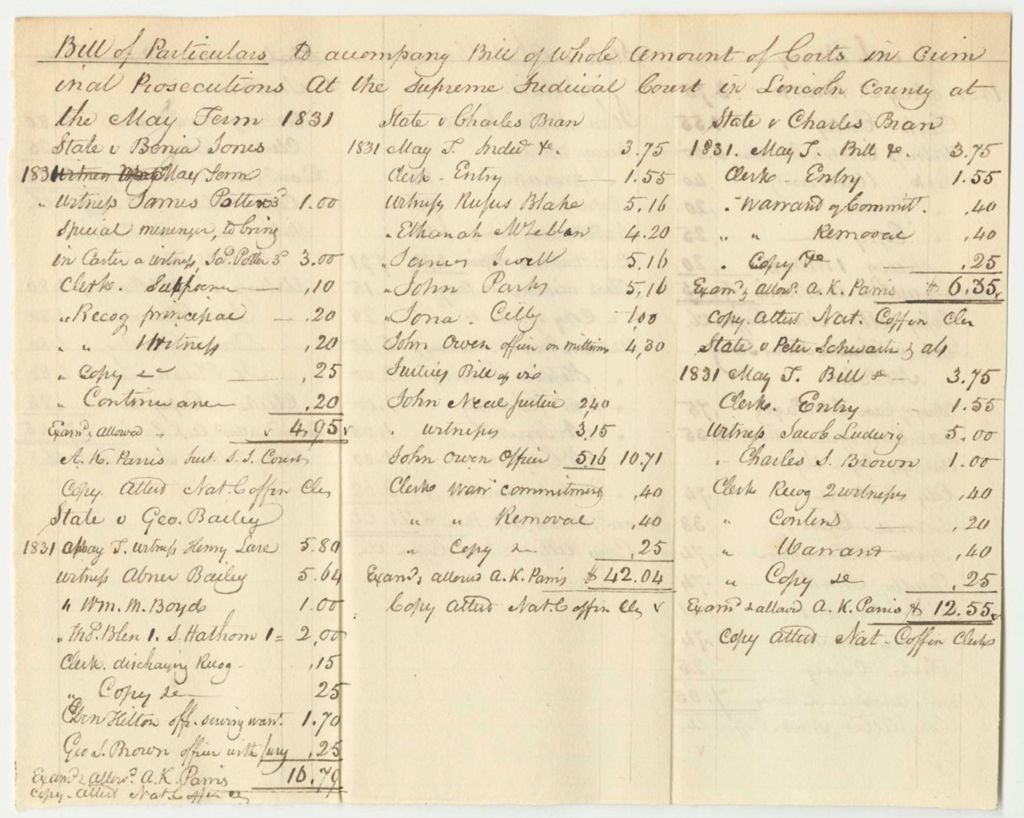 Bill of Particulars to acompany Bill of Whole Amount of Costs in Crim
inal Prosecutions At the Supreme Judicial Court in Lincoln County at
the May Term 1831
State v Benja Jones
1831 May Term
" Witness James Potter 3d 1.00
Special messenger, to bring
in Carter a witness, Jas. Potter 3d 3.00
Clerk. Suppoena ,10
" Recog principal ,20
" " 1 Witness ,20
" Copy &c ,25
" Continuance ,20
Examd & allowed 4,95
A. K. Parris Just. S. J. Court
Copy Attest Nat Coffin Clerk
State v Geo. Bailey
1831 May T. witness Henry 5.80
Witness Abner Bailey 5.64
" Wm. M. Boyd 1.00
" Thos. Blen 1. S. Hathorn 1= 2,00
Clerk. discharging Recog - ,15
" Copy &c 25
Eben Hilton off. serving warrt. 1.70
Geo S. Brown officer with Jury ,25
Examd & allowd. A. K. Parris 16.79
Copy - Attest Nat Coffin Clk
State v Charles Bran
1831 May T. Indict &c. 3.75
Clerk - Entry 1.55
Witness Rufus Blake 5.16
" Elkanah McLellan 4.20
" James 5.16
" John Parks 5,16
" Jona. Cilly 1,00
John Owen officer on mittimus 4,30
Justices Bill of viz
John Neal Justice 240
" witnesses 3.15
John Owen Officer 5.16 10.71
Clerks Warr commitment ,40
" " Removal ,40
" Copy &c ,25
Examd & allowed A. K. Parris $42.04
Copy Attest Nat Coffin Clk
State v Charles Bran
1831. May T. Bill &c. 3.75
Clerk - Entry 1.55
" Warrand of Committ. ,40
" " Removal ,40
" Copy &c ,25
Examd & allowd. A. K. Parris $ 6.35
Copy. Attest Nat. Coffin Clk
State v Peter Schwartz & als
1831 May T. Bill & - 3.75
Clerk. Entry 1.55
Witness Jacob Ludwig 5.00
" Charles S. Brown 1.00
Clerk Recog 2 witnesses ,40
" Contens ,20
" Warrant ,40
" Copy &c ,25
Examd & allowd A. K. Parris $ 12.55
Copy Attest Nat - Coffin Clerk